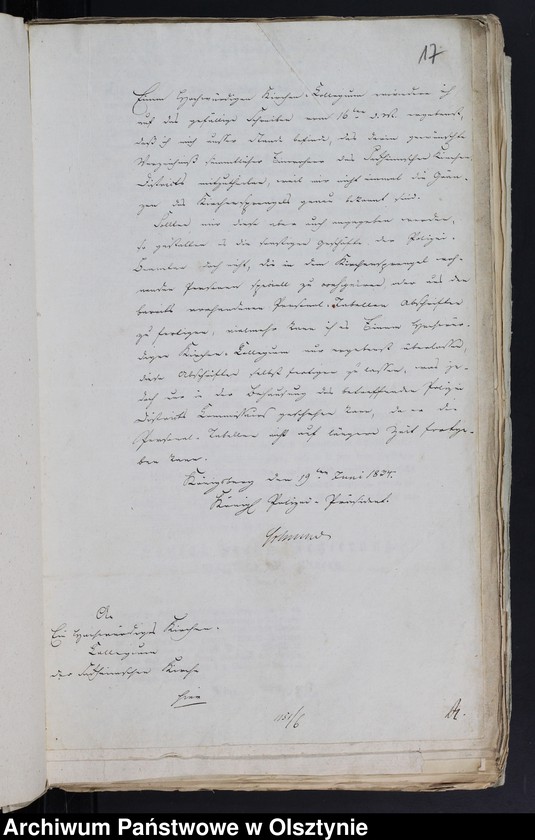 17
Einem Hochwürdigen Kirchen-Collegium erwiedere ich
auf das gefällige Schreiben vom 16ten d. M. ergebenst,
daß ich mich außer Stande befinde, das darin gewünschte
Verzeichniß sämmtlicher Einwohner des Kirchen-
Districts mitzutheilen, weil mir nicht einmal die Grän-
zen des Kirchensprengels genau bekannt sind.
Sollten mir diese aber auch angegeben werden,
so gestatten es die sonstigen Geschäfte der Polizei-
Beamten doch nicht, die in dem Kirchensprengel
Personen speciell zu oder aus den
bereits vorhandenen Personal-Tabellen Abschriften
zu fertigen, vielmehr kann ich es Einem Hochwür-
digen Kirchen-Collegium nur ergebenst überlassen,
diese Abschriften selbst fertigen zu lassen, was je-
doch nur in der Behausung des betreffenden Polizei
Districts Commissarius geschehen kann, da er die
Personal-Tabellen nicht auf längere Zeit fortge-
ben kann.
Königsberg den 19ten Juni 1834.
Königl Polizei-Präsident.
An
Ein Hochwürdiges Kirchen-
Collegium
der Kirche
hier
Archiwum Państwowe w Olsztynie